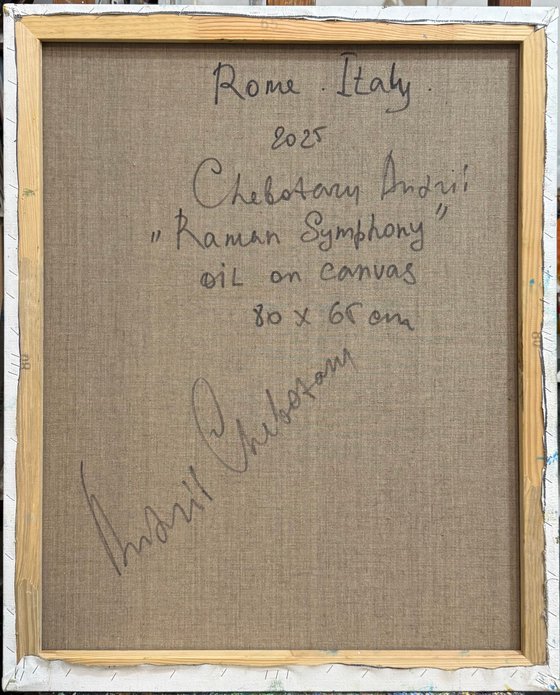 Rome. Italy.
2025
Chebotaru Andrii
"Raman Symphony"
oil on canvas
80 x 65 cm
Andrii Chebotaru